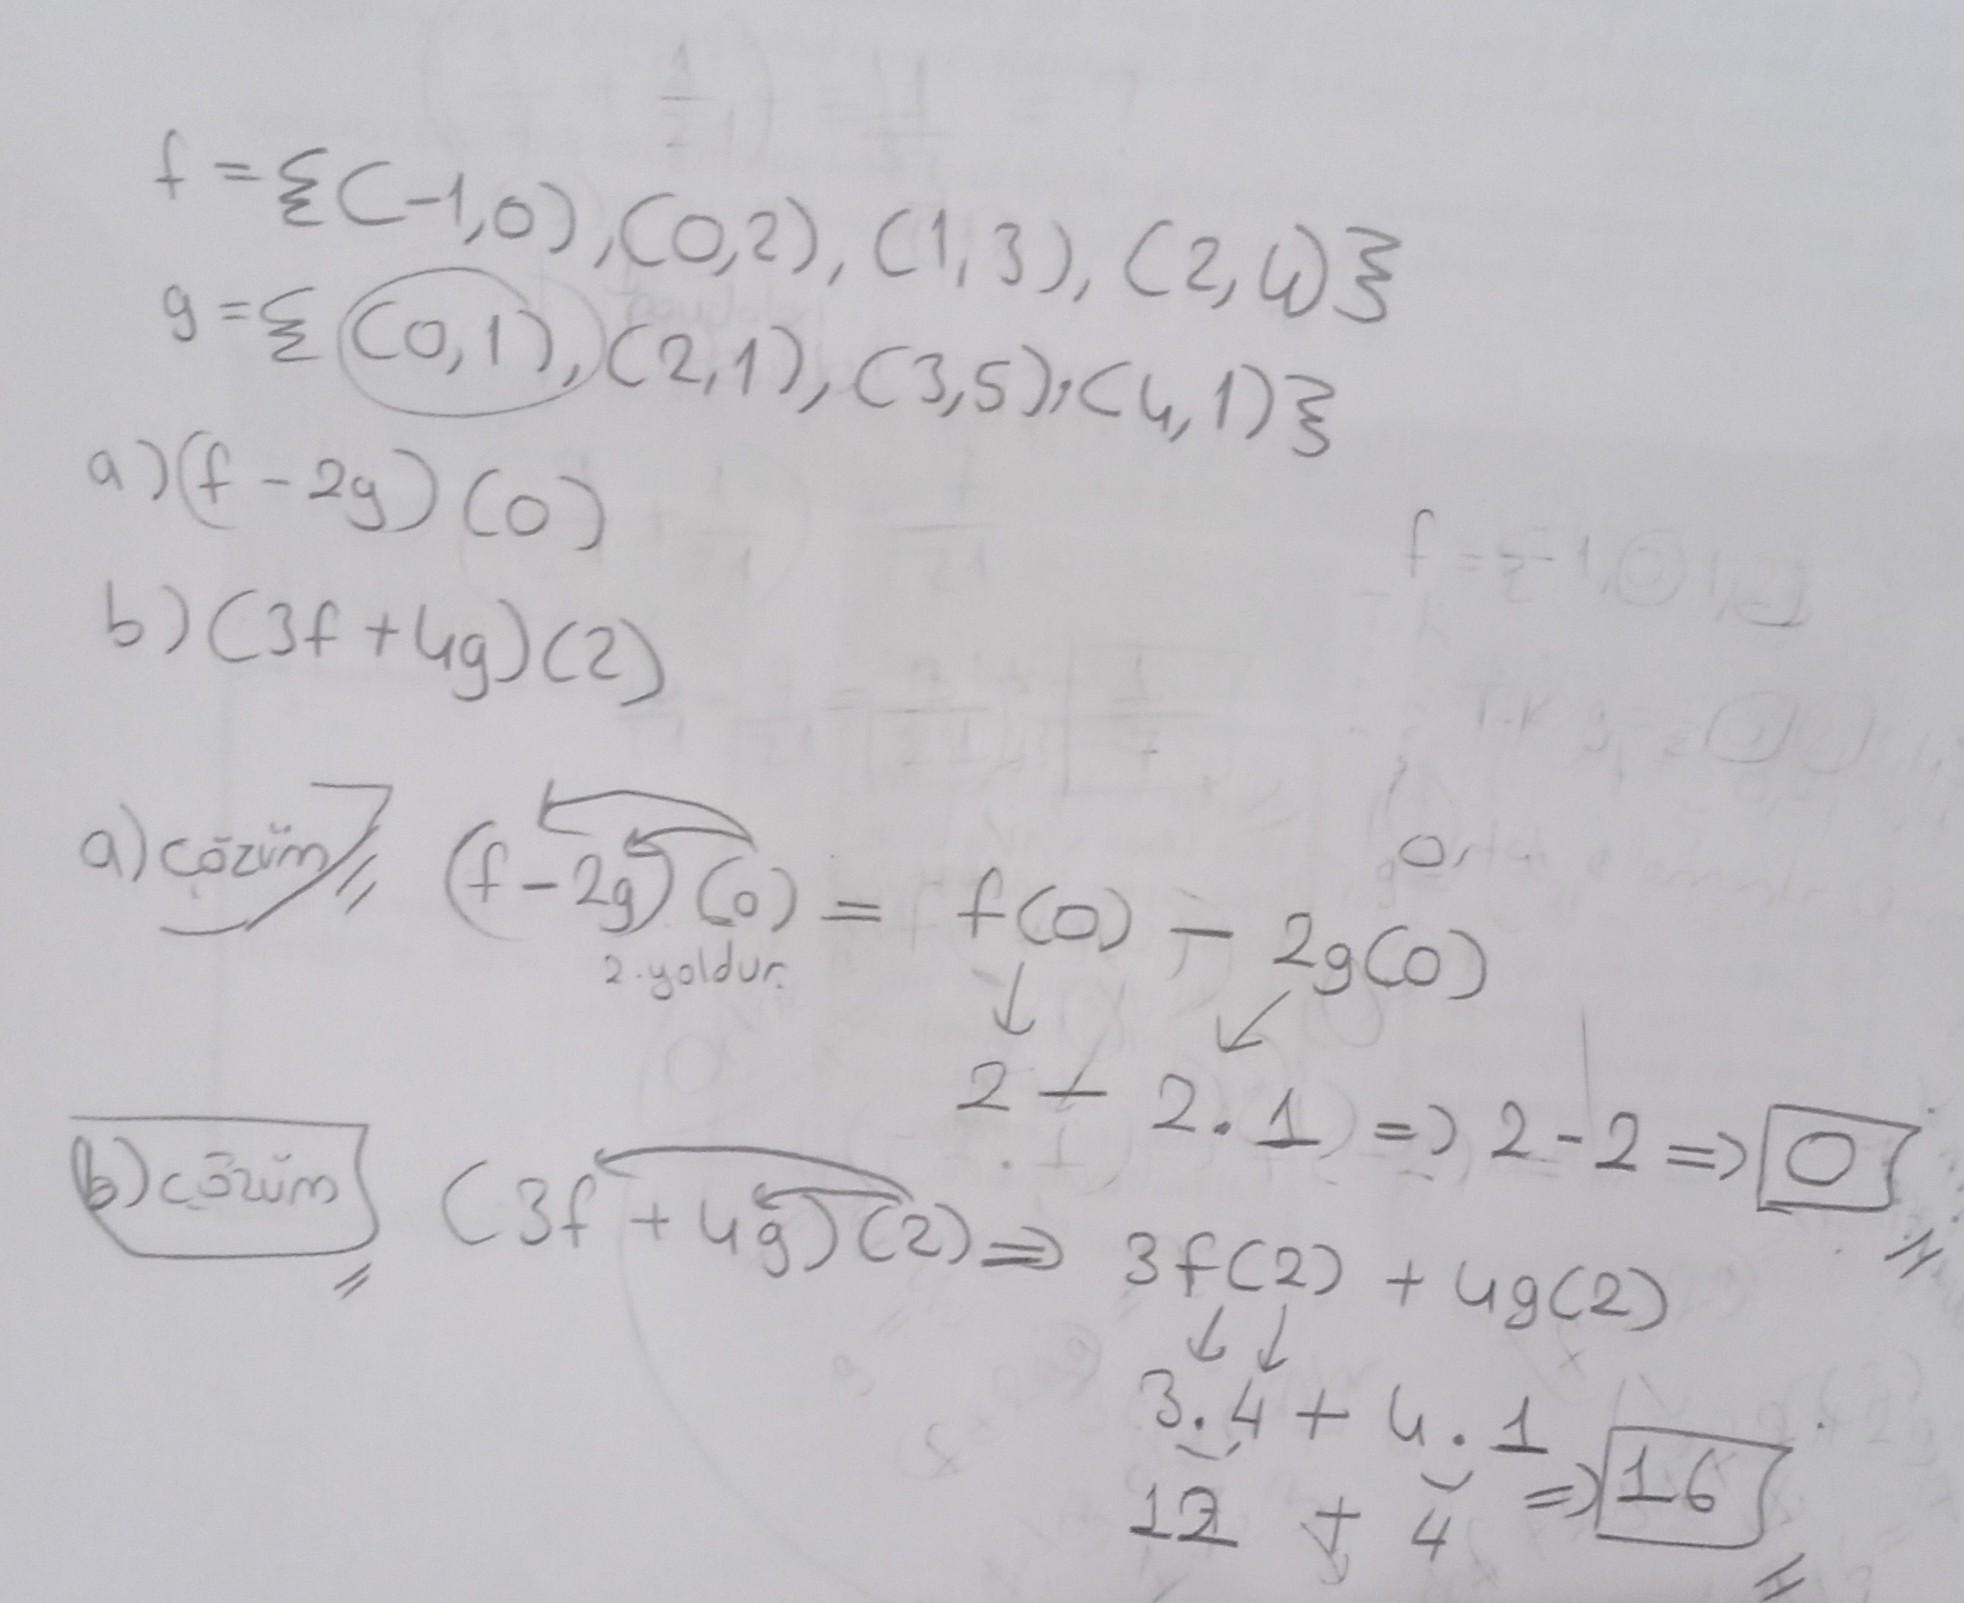 f = {(-1,0),(0,2),(1,3),(2,4)}
g = {(0,1),(2,1),(3,5),(4,1)}
a) (f - 2g) (0)
b) (3f + 4g) (2)
a) çözüm (f - 2g) (0) = f(0) - 2g(0)
2.yoldur.
2 - 2.1 => 2 - 2 => 0
b) çözüm (3f + 4g) (2) => 3f(2) + 4g(2)
3.4 + 4.1
12 + 4 => 16